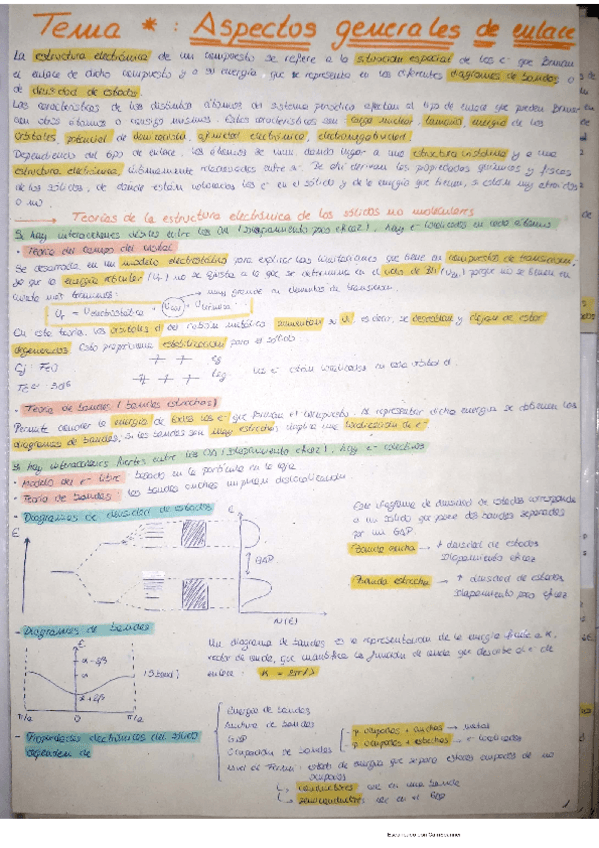 Tema * : Aspectos generales de enlace
La estructura electrónica de un compuesto se refiere a la situación espacial de los e⁻ que forman
el enlace de dicho compuesto y a su energía, que se representa en los diferentes diagramas de bandas o
de densidad de estados.
Las características de los distintos átomos del sistema periódico afectan al tipo de enlace que pueden formar
con otros átomos o consigo mismos. Estas características son carga nuclear, tamaño, energía de los
orbitales, potencial de ionización, afinidad electrónica, electronegatividad.
Dependiendo del tipo de enlace, los átomos se unen, dando lugar a una estructura cristalina y a una
estructura electrónica, íntimamente relacionadas entre sí. De ahí derivan las propiedades químicas y físicas
de los sólidos, de donde están colocados los e⁻ en el sólido y de la energía que tienen, si están muy atraídos
o no.
Teorías de la estructura electrónica de los sólidos no moleculares
Si hay interacciones débiles entre los OA (solapamiento poco eficaz), hay e⁻ localizados en cada átomo
- Teoría del campo del cristal
Se desarrolla en un modelo electrostático para explicar las limitaciones que tiene en compuestos de transición,
ya que la energía reticular (U) no se ajusta a lo que se determina en el ciclo de BH porque no se tienen en
cuenta más términos:
muy grande en elementos de transición
En esta teoría, los orbitales d del catión metálico es decir, se desdoblan y dejan de estar
degenerados. Esto proporciona estabilización para el sólido
Ej: FeO
eg
t2g
Los e⁻ están localizados en ese orbital d.
- Teoría de bandas (bandas estrechas)
Permite conocer la energía de todos los e⁻ que forman el compuesto. Al representar dicha energía se obtienen los
diagramas de bandas; si las bandas son muy estrechas, implica una localización de e⁻
Si hay interacciones fuertes entre los OA (solapamiento eficaz), hay e⁻ colectivos
- Modelo del e⁻ libre: basado en la partícula en la caja
- Teoría de bandas: las bandas anchas implican deslocalización
- Diagramas de densidad de estados
E
E
GAP
N(E)
Este diagrama de densidad de estados corresponde
a un sólido que posee dos bandas separadas
por un GAP
Banda ancha → ↓ densidad de estados
Solapamiento eficaz
Banda estrecha → ↑ densidad de estados
Solapamiento poco eficaz
- Diagramas de bandas
E
α-2β
α+2β
1 banda
π/a 0 π/a
Un diagrama de bandas es la representación de la energía frente a K,
vector de onda, que cuantifica la función de onda que describe al e⁻ de
enlace. K = 2π/λ
- Propiedades electrónicas del sólido
dependen de
Energía de bandas
Anchura de bandas
GAP
Ocupación de bandas
p. ocupadas + anchas → metal
p. ocupadas + estrechas → e⁻ localizados
Nivel de Fermi: estado de energía que separa estados ocupados de no
ocupados
conductores: cae en una banda
semiconductores: cae en el GAP
1
Escaneado con CamScanner